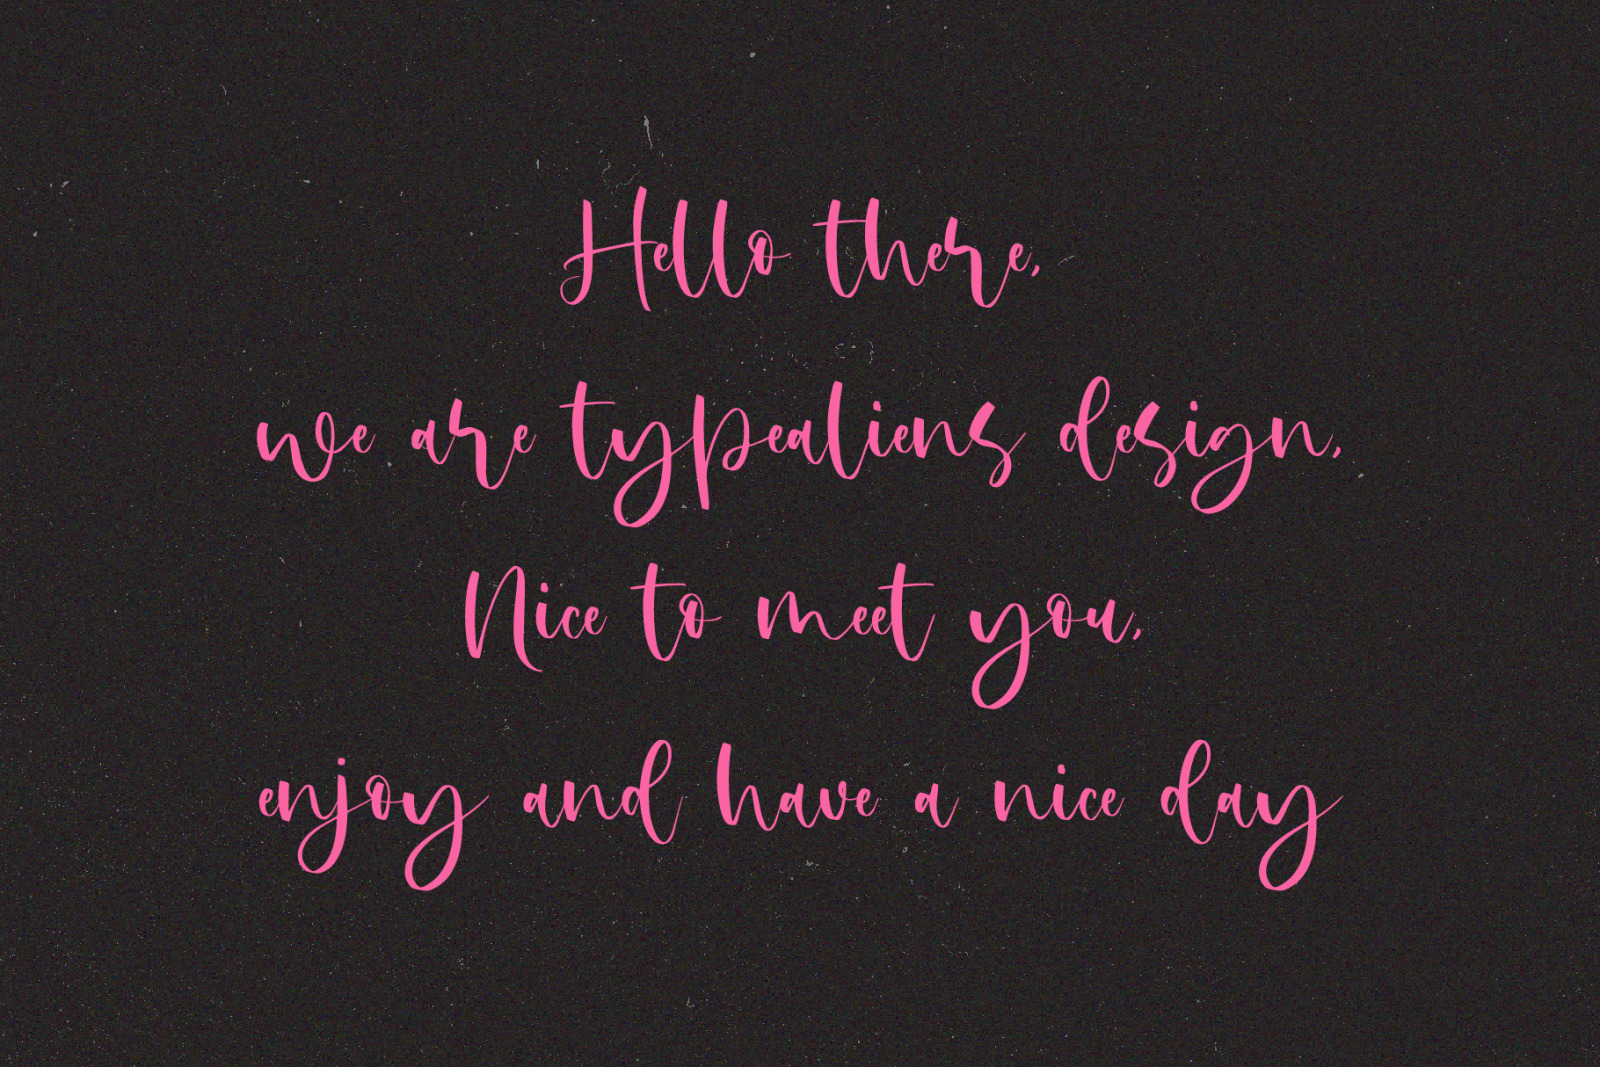 Hello there,
we are typealiens design,
Nice to meet you,
enjoy and have a nice day